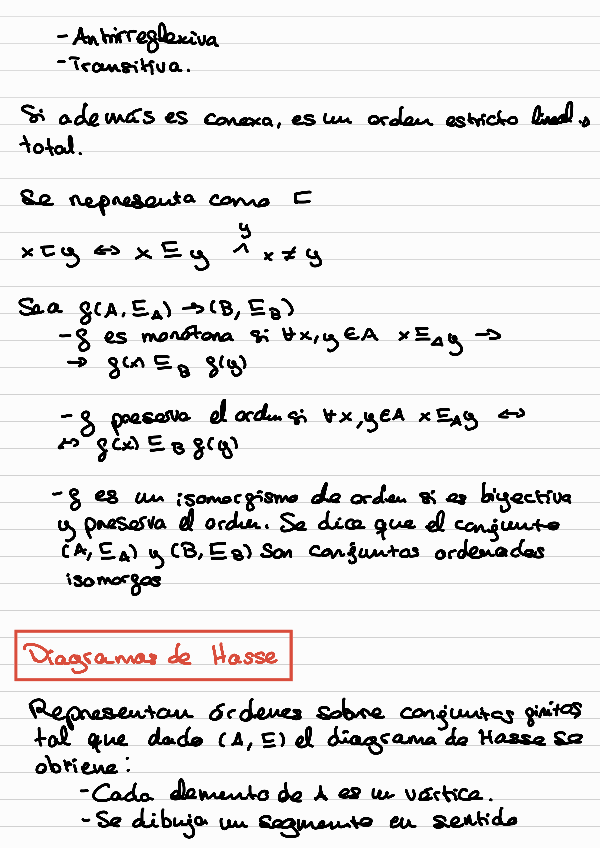 - Antirreflexiva
- Transitiva.
Si además es conexa, es un orden estricto lineal o
total.
Se representa como ⊏
y
x ⊏ y ↔ x ⊑ y ^ x ≠ y
Sea f(A, ⊑A) → (B, ⊑B)
- f es monótona si ∀x, y ∈ A x ⊑A y →
→ f(x) ⊑B f(y)
- f preserva el orden si ∀x, y ∈ A x ⊑A y ↔
↔ f(x) ⊑B f(y)
- f es un isomorfismo de orden si es biyectiva
y preserva el orden. Se dice que el conjunto
(A, ⊑A) y (B, ⊑B) son conjuntos ordenados
isomorfos
Diagramas de Hasse
Representan órdenes sobre conjuntos finitos
tal que dado (A, ⊑) el diagrama de Hasse se
obtiene:
- Cada elemento de A es un vértice.
- Se dibuja un segmento en sentido